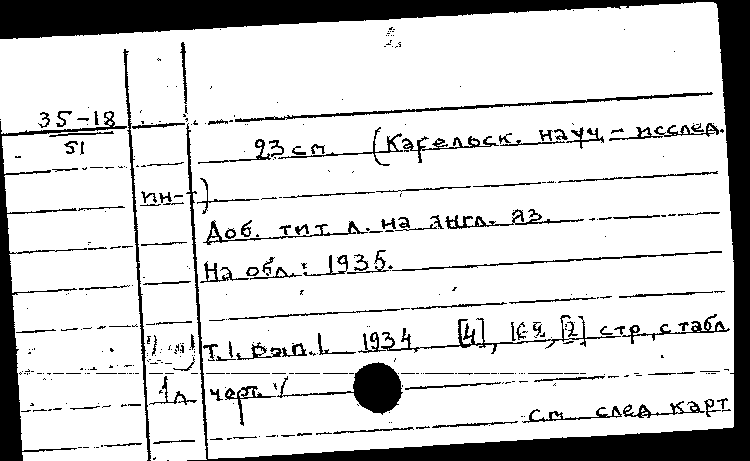 2.
35-18
51
23 см. (Карельск. науч.-исслед.
ин-т).
Доб. тит. л. на англ. яз.
На обл.: 1935.
Т.1. Вып.1. 1934. [4], 162, [2] стр., с табл
1 л. черт.
См след карт